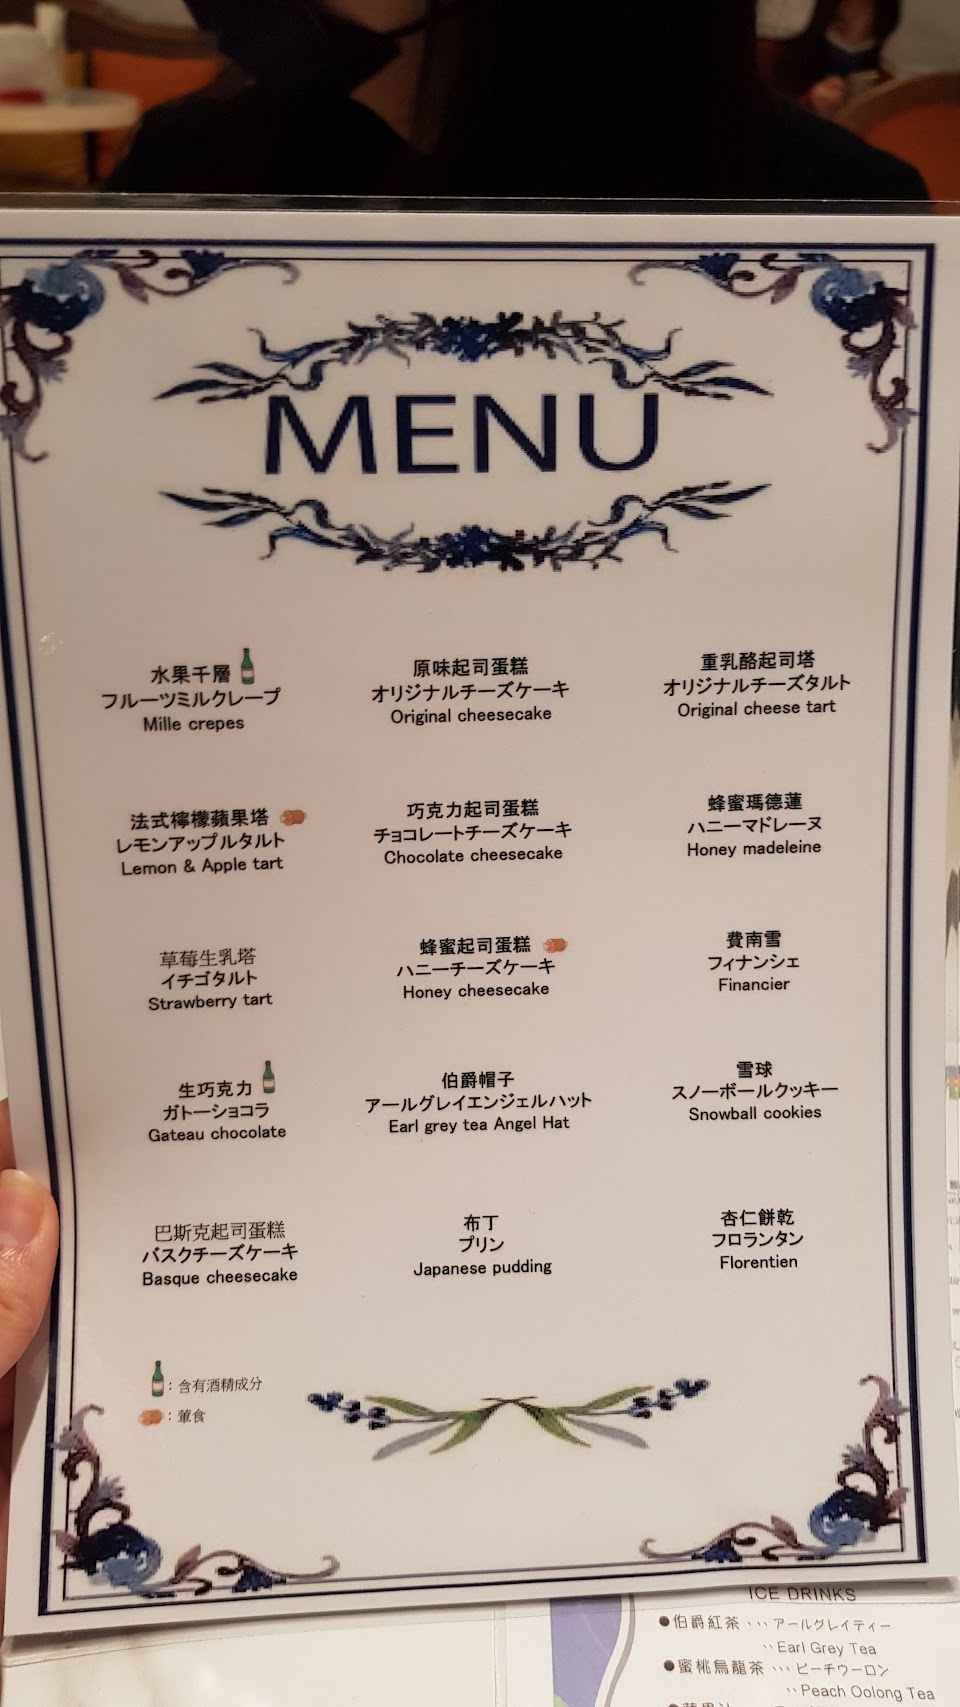 MENU
水果千層
フルーツミルクレープ
Mille crepes
原味起司蛋糕
オリジナルチーズケーキ
Original cheesecake
重乳酪起司塔
オリジナルチーズタルト
Original cheese tart
法式檸檬蘋果塔
レモンアップルタルト
Lemon & Apple tart
巧克力起司蛋糕
チョコレートチーズケーキ
Chocolate cheesecake
蜂蜜瑪德蓮
ハニーマドレーヌ
Honey madeleine
草莓生乳塔
イチゴタルト
Strawberry tart
蜂蜜起司蛋糕
ハニーチーズケーキ
Honey cheesecake
費南雪
フィナンシェ
Financier
生巧克力
ガトーショコラ
Gateau chocolate
伯爵帽子
アールグレイエンジェルハット
Earl grey tea Angel Hat
雪球
スノーボールクッキー
Snowball cookies
巴斯克起司蛋糕
バスクチーズケーキ
Basque cheesecake
布丁
プリン
Japanese pudding
杏仁餅乾
フロランタン
Florentien
：含有酒精成分
：葷食
ICE DRINKS
●伯爵紅茶 ··· アールグレイティー
·· Earl Grey Tea
●蜜桃烏龍茶 ··· ピーチウーロン
·· Peach Oolong Tea